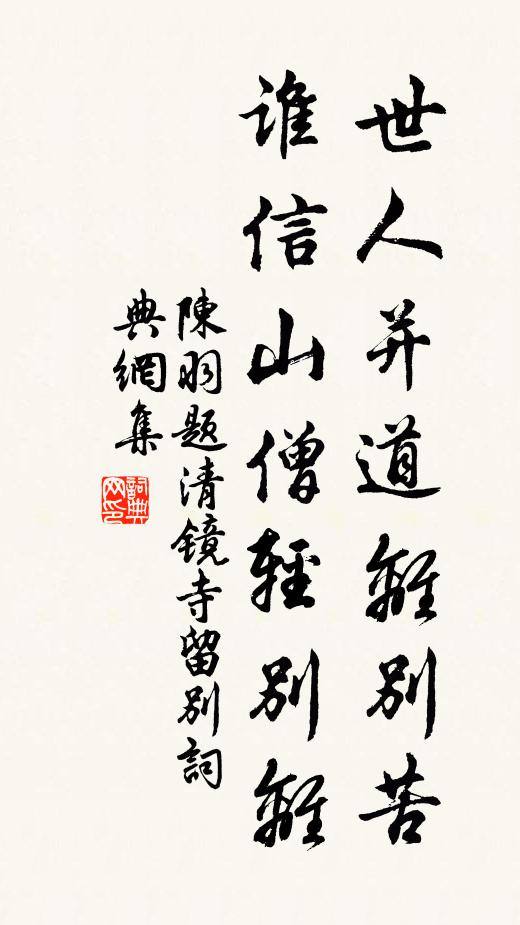 世人并道離別苦
誰信山僧輕別離
陳羽題清鏡寺留別詞
典網集
詞典网印